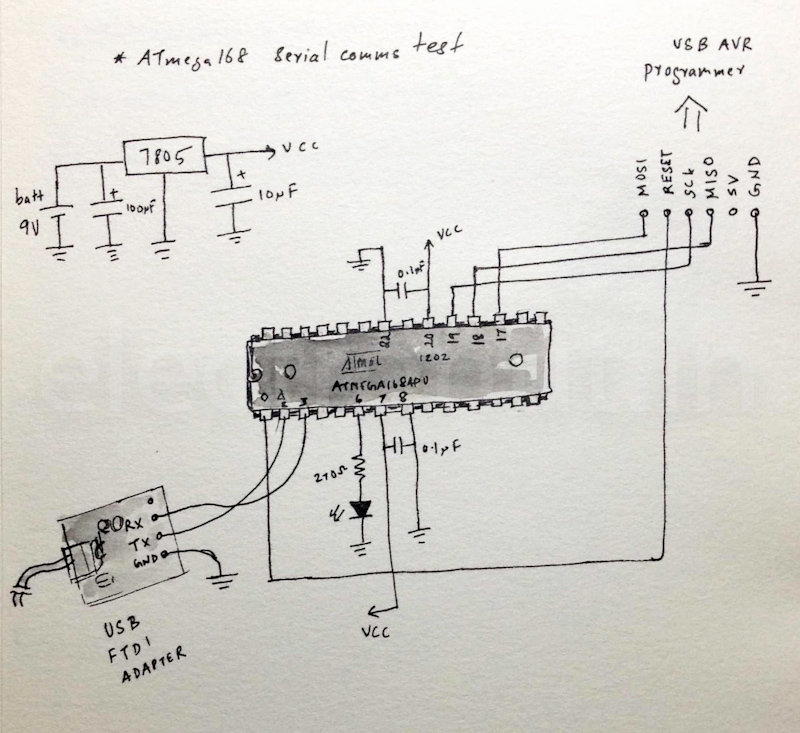 * ATmega168 serial comms test
USB AVR
Programmer
MOSI
RESET
SCK
MISO
5V
GND
7805
VCC
batt
9V
+
100µF
+
10µF
VCC
0.1µF
22
20
19
18
17
Atmel
1202
ATMEGA168APU
2
3
6
7
8
270Ω
0.1µF
VCC
RX
TX
GND
USB
FTDI
ADAPTER